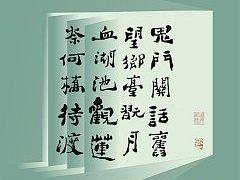 鬼門關話舊
望鄉臺翫月
血湖池觀蓮
柰何橋待渡